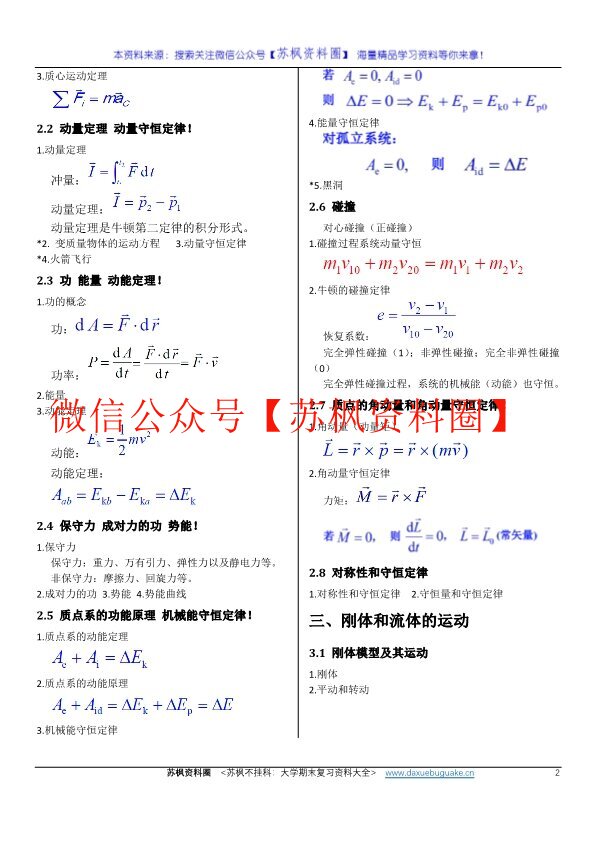 本资料来源：搜索关注微信公众号【苏枫资料圈】 海量精品学习资料等你来拿！
3.质心运动定理
∑F⃗ᵢ = ma⃗_C
2.2 动量定理 动量守恒定律！
1.动量定理
冲量：I⃗ = ∫_{t₁}^{t₂} F⃗ dt
动量定理：I⃗ = p⃗₂ − p⃗₁
动量定理是牛顿第二定律的积分形式。
*2. 变质量物体的运动方程 3.动量守恒定律
*4.火箭飞行
2.3 功 能量 动能定理！
1.功的概念
功：dA = F⃗ · dr⃗
功率：P = dA/dt = F⃗ · dr⃗/dt = F⃗ · v⃗
2.能量
3.动能定理
动能：E_k = 1/2 mv²
动能定理：
A_ab = E_kb − E_ka = ΔE_k
2.4 保守力 成对力的功 势能！
1.保守力
保守力：重力、万有引力、弹性力以及静电力等。
非保守力：摩擦力、回旋力等。
2.成对力的功 3.势能 4.势能曲线
2.5 质点系的功能原理 机械能守恒定律！
1.质点系的动能定理
A_e + A_i = ΔE_k
2.质点系的动能原理
A_e + A_id = ΔE_k + ΔE_p = ΔE
3.机械能守恒定律
若 A_e = 0, A_id = 0
则 ΔE = 0 ⇒ E_k + E_p = E_k0 + E_p0
4.能量守恒定律
对孤立系统：
A_e = 0, 则 A_id = ΔE
*5.黑洞
2.6 碰撞
对心碰撞（正碰撞）
1.碰撞过程系统动量守恒
m₁v₁₀ + m₂v₂₀ = m₁v₁ + m₂v₂
2.牛顿的碰撞定律
恢复系数：e = (v₂ − v₁)/(v₁₀ − v₂₀)
完全弹性碰撞（1）；非弹性碰撞；完全非弹性碰撞
（0）
完全弹性碰撞过程，系统的机械能（动能）也守恒。
2.7 质点的角动量和角动量守恒定律
1.角动量（动量矩）
L⃗ = r⃗ × p⃗ = r⃗ × (mv⃗)
2.角动量守恒定律
力矩：M⃗ = r⃗ × F⃗
若 M⃗ = 0, 则 dL⃗/dt = 0, L⃗ = L⃗₀ (常矢量)
2.8 对称性和守恒定律
1.对称性和守恒定律 2.守恒量和守恒定律
三、刚体和流体的运动
3.1 刚体模型及其运动
1.刚体
2.平动和转动
微信公众号【苏枫资料圈】
苏枫资料圈 <苏枫不挂科：大学期末复习资料大全> www.daxuebuguake.cn 2